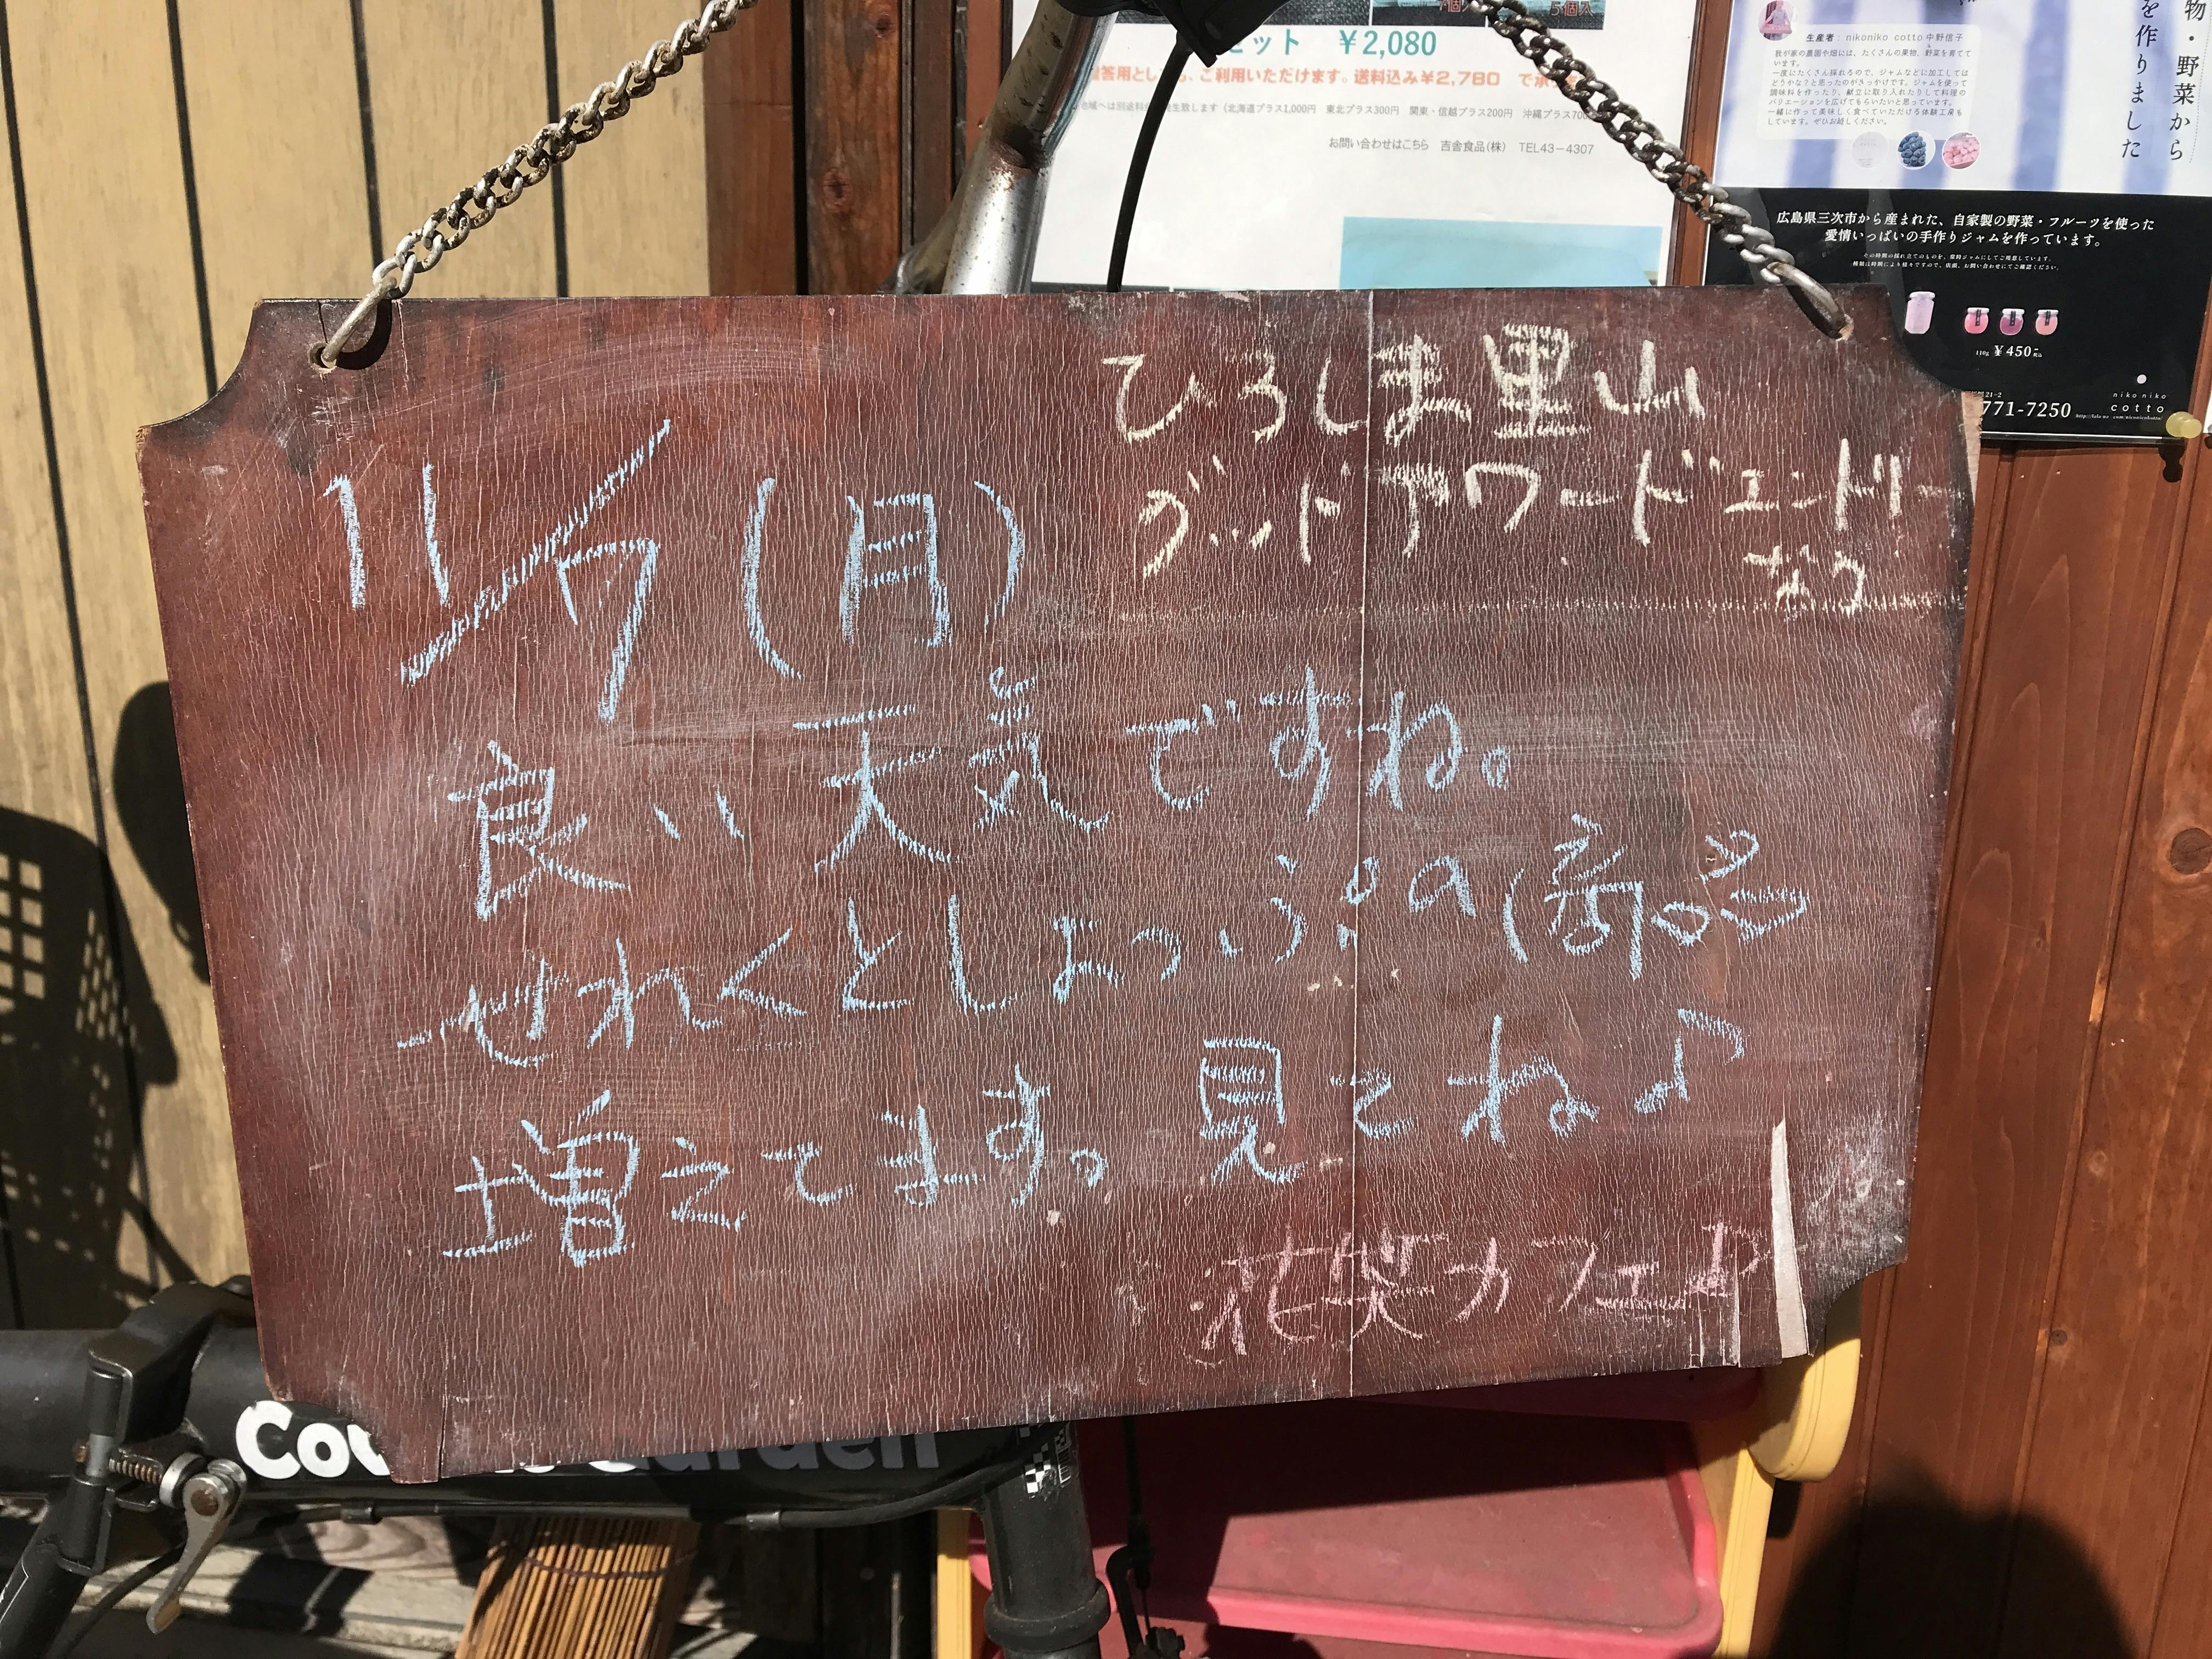 ット ￥2,080
ご利用いただけます。送料込み￥2,780 で
生致します（北海道プラス1,000円 東北プラス300円 関東・信越プラス200円 沖縄プラス700
お問い合わせはこちら 吉舎食品（株） TEL43－4307
物・野菜から
を作りました
生産者： nikoniko cotto 中野信子
我が家の農園や畑には、たくさんの果物、野菜を育てて
います。
一度にたくさん採れるので、ジャムなどに加工しては
どうかな？と思ったのがきっかけです。ジャムを使って
調味料を作ったり、献立に取り入れたりして料理の
バリエーションを広げてもらいたいと思っています。
一緒に作って美味しく食べていただける体験工房も
しています。ぜひお越しください。
広島県三次市から産まれた、自家製の野菜・フルーツを使った
愛情いっぱいの手作りジャムを作っています。
110g ￥450
771-7250
niko niko
cotto
ひろしま里山
グッドアワードエントリー
なう
11/7（月）
良い天気ですね。
せれくとしょっぷの
増えてます。見てね♪
花笑カフェ
Cou
arden